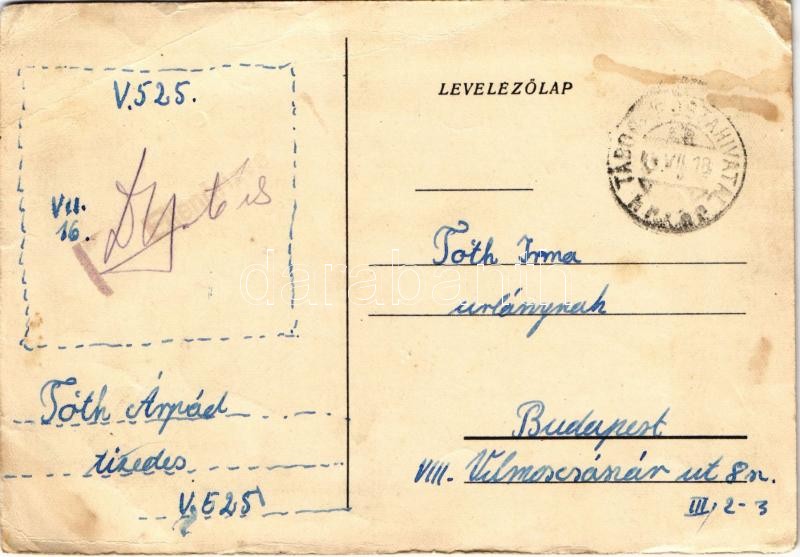 V.525.
VII.
16.
Tóth Árpád
tizedes
V.525
LEVELEZŐLAP
TÁBORI POSTAHIVATAL
VII 18
Tóth Irma
urlánynak
Budapest
VIII. Vilmoscsászár ut 8 sz.
III, 2-3
darabanth